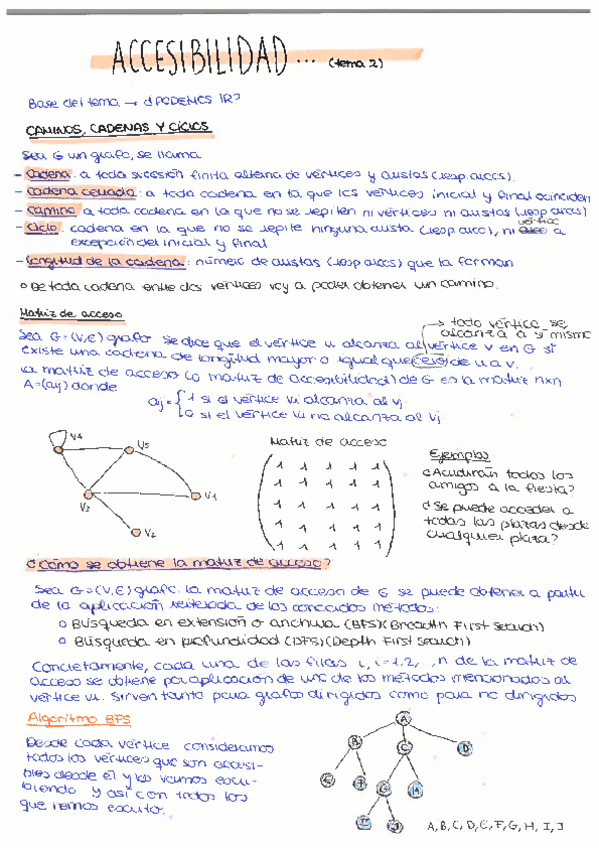 ACCESIBILIDAD... (tema 2)
Base del tema → ¿PODEMOS IR?
CAMINOS, CADENAS Y CICLOS
Sea G un grafo, se llama
- Cadena: a toda sucesión finita alterna de vértices y aristas (resp. arcos).
- Cadena cerrada: a toda cadena en la que los vértices inicial y final coinciden
- Camino: a toda cadena en la que no se repiten ni vértices ni aristas (resp arcos)
- Ciclo: cadena en la que no se repite ninguna arista (resp arco), ni vértice a
excepción del inicial y final
- Longitud de la cadena: número de aristas (resp arcos) que la forman
o De toda cadena entre dos vértices voy a poder obtener un camino.
Matriz de acceso
→ todo vértice se
alcanza a sí mismo
Sea G=(V,E) grafo se dice que el vértice u alcanza al vértice v en G si
existe una cadena de longitud mayor o igual que cero de u a v.
La matriz de acceso (o matriz de accesibilidad) de G es la matriz nxn
A=(aij) donde
aij = { 1 si el vértice vi alcanza al vj
0 si el vértice vi no alcanza al vj
V4
V5
V3
V1
V2
Matriz de acceso
1 1 1 1 1
1 1 1 1 1
1 1 1 1 1
1 1 1 1 1
1 1 1 1 1
Ejemplos
¿Acudirán todos los
amigos a la fiesta?
¿Se puede acceder a
todas las plazas desde
cualquier plaza?
¿Cómo se obtiene la matriz de acceso?
Sea G=(V,E) grafo. La matriz de acceso de G se puede obtener a partir
de la aplicación reiterada de los conocidos métodos:
o Búsqueda en extensión o anchura (BFS)(Breadth First Search)
o Búsqueda en profundidad (DFS)(Depth First Search)
Concretamente, cada una de las filas i, i=1,2,..,n de la matriz de
acceso se obtiene por aplicación de uno de los métodos mencionados al
vértice vi. Sirven tanto para grafos dirigidos como para no dirigidos
Algoritmo BFS
Desde cada vértice consideramos
todos los vértices que son accesi-
bles desde él y los vamos escri-
biendo y así con todos los
que hemos escrito.
A
B
C
D
E
F
G
H
I
J
A, B, C, D, E, F, G, H, I, J